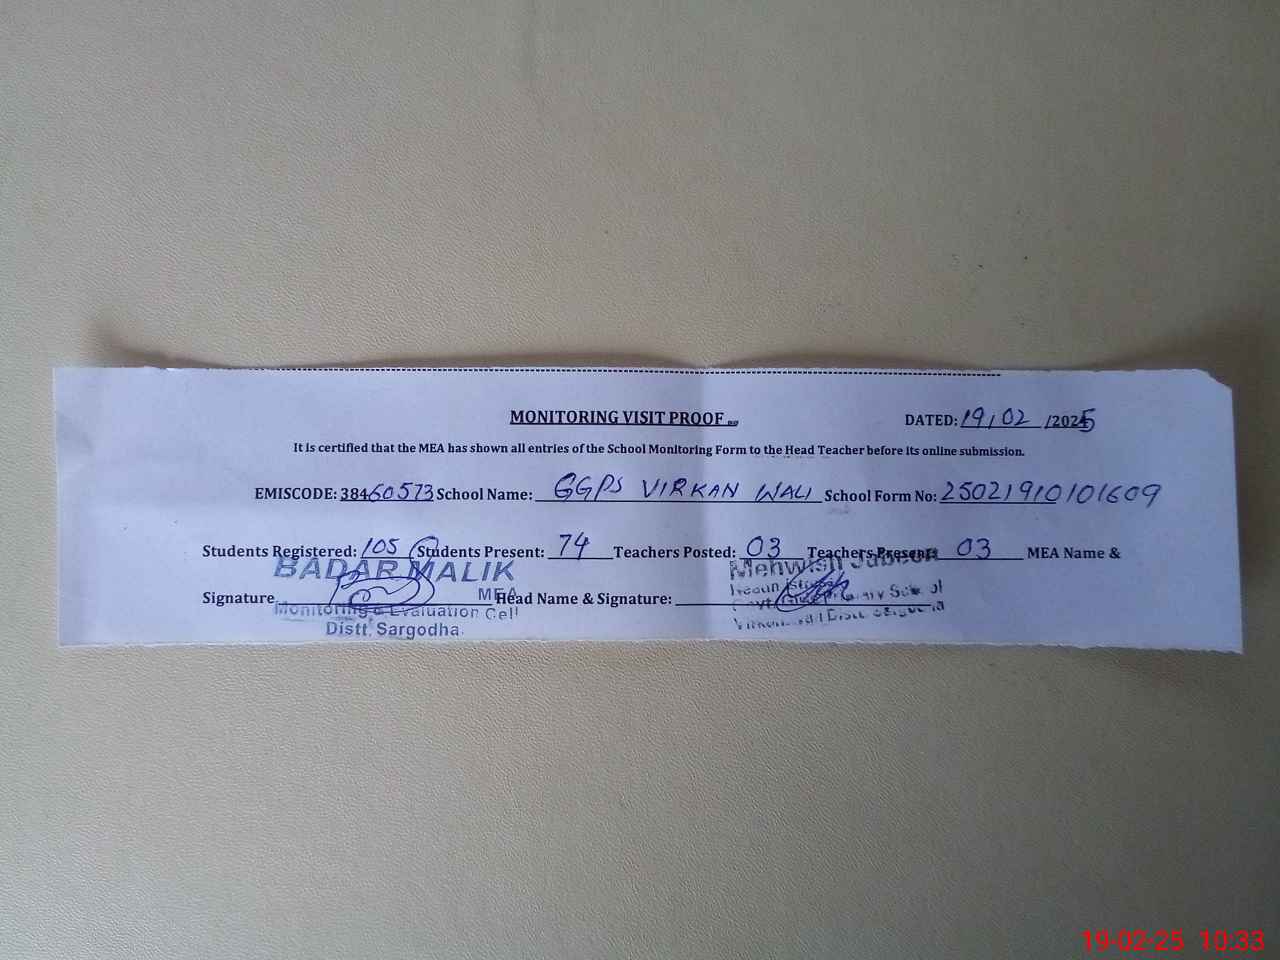 MONITORING VISIT PROOF
DATED: 19/02/2025
It is certified that the MEA has shown all entries of the School Monitoring Form to the Head Teacher before its online submission.
EMISCODE: 38460573 School Name: GGPS VIRKAN WALI School Form No: 25021910101609
Students Registered: 105 Students Present: 74 Teachers Posted: 03 Teachers Present: 03 MEA Name &
BADAR MALIK
Mehwish Jabeen
Signature MEA Head Name & Signature:
Monitoring & Evaluation Cell
Distt. Sargodha.
19-02-25 10:33